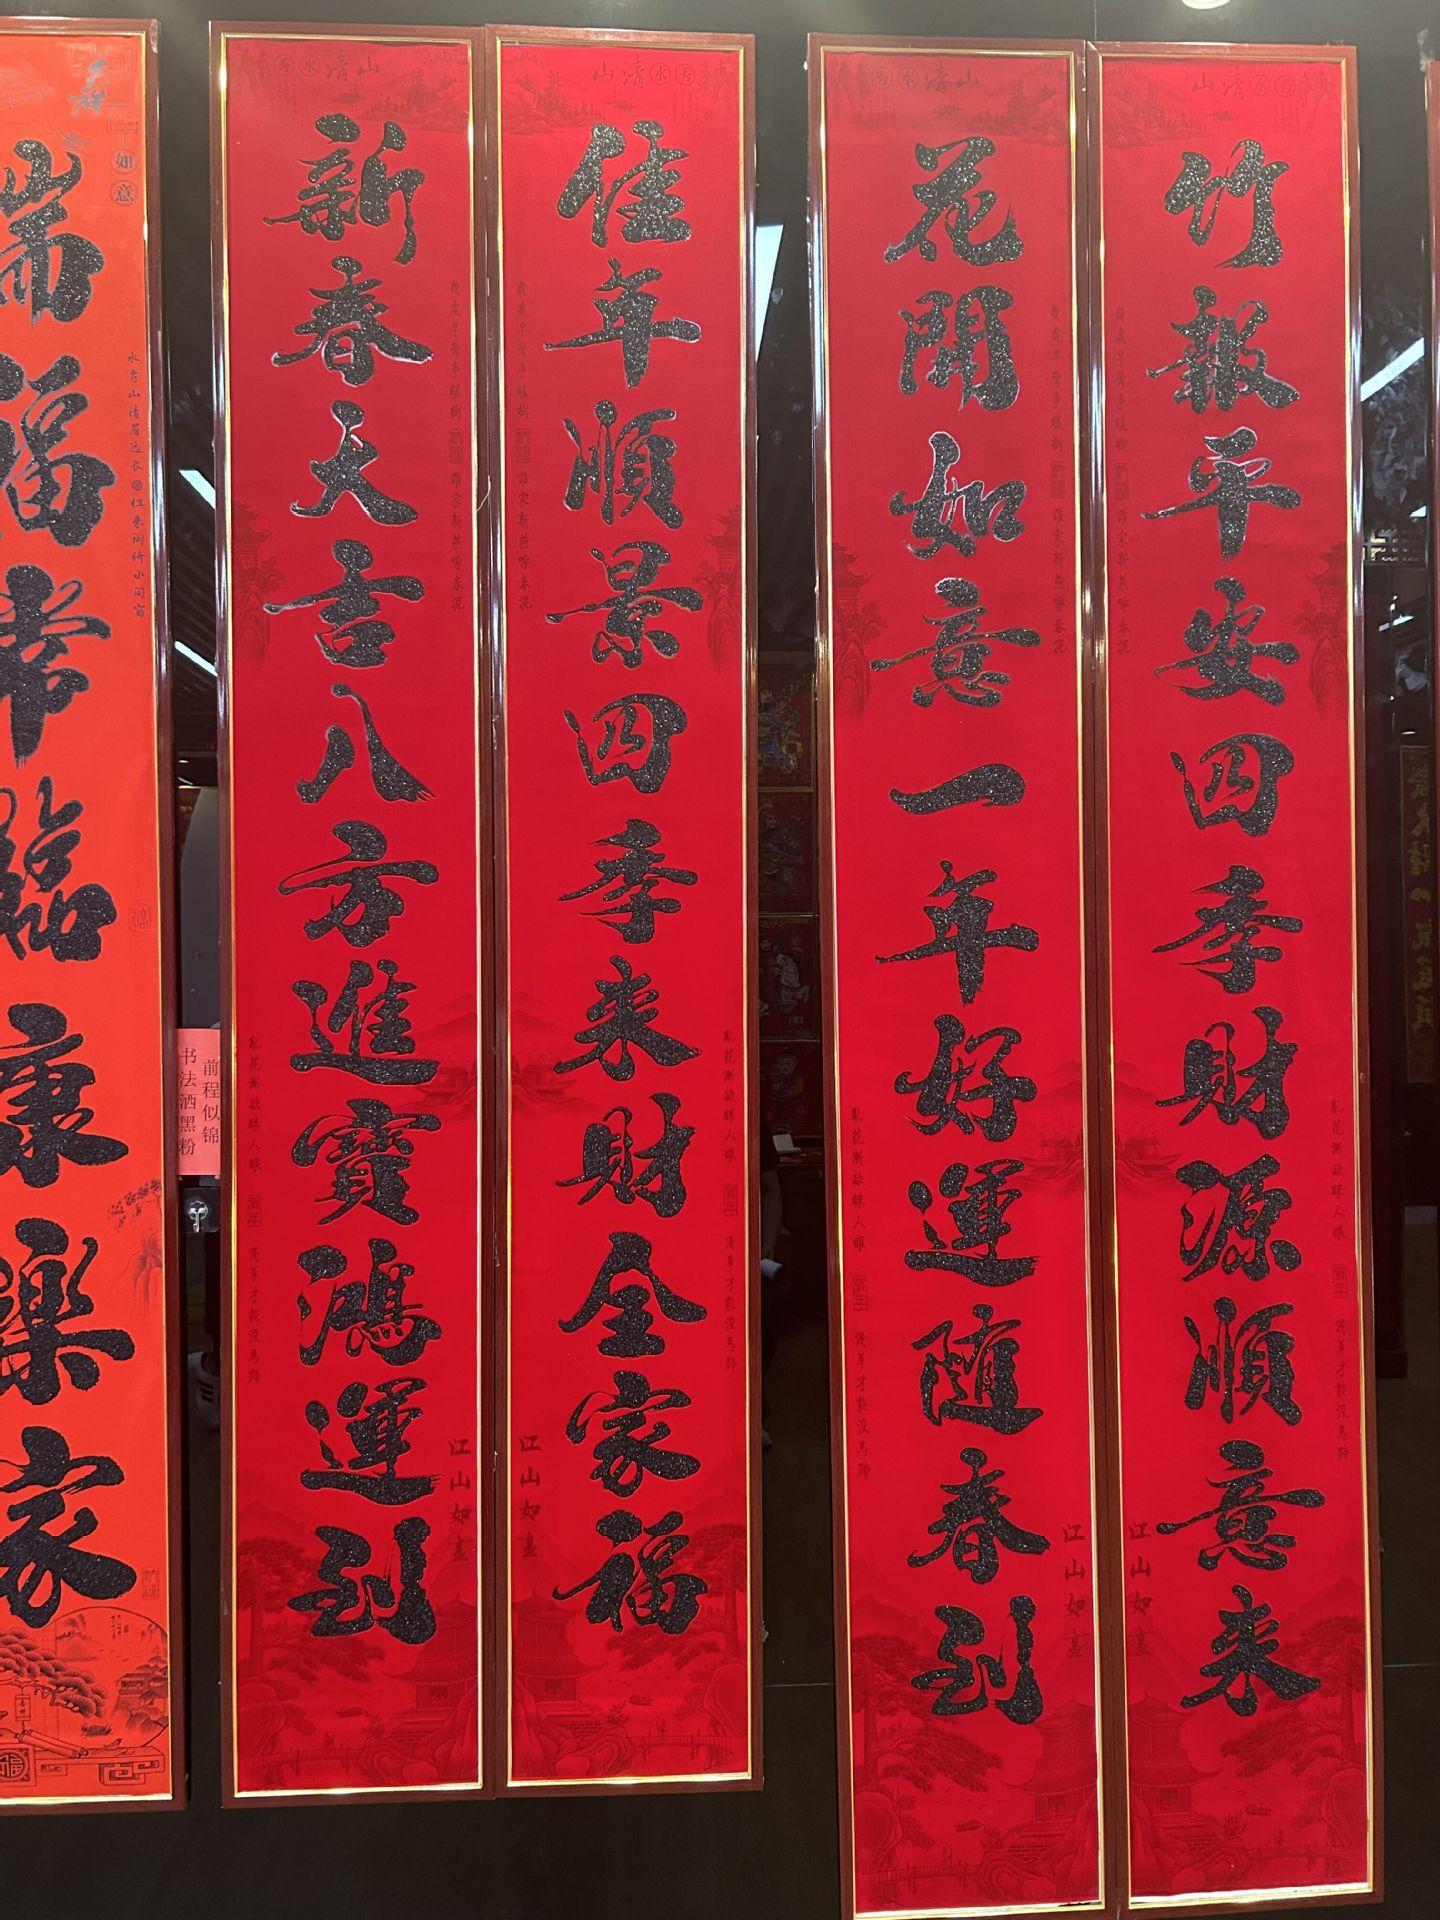 竹報平安四季財源順意來
花開如意一年好運隨春到
佳年順景四季来財全家福
新春大吉八方進寶鴻運到
瑞福常臨康樂家
如意
山清水秀
山清水秀
山清水秀
山清水秀
幾處早鶯爭暖樹
誰家新燕啄春泥
亂花漸欲眯人眼
淺草才能沒馬蹄
江山如畫
幾處早鶯爭暖樹
誰家新燕啄春泥
亂花漸欲眯人眼
淺草才能沒馬蹄
江山如畫
幾處早鶯爭暖樹
誰家新燕啄春泥
亂花漸欲眯人眼
淺草才能沒馬蹄
江山如畫
幾處早鶯爭暖樹
誰家新燕啄春泥
亂花漸欲眯人眼
淺草才能沒馬蹄
江山如畫
前程似锦
书法洒黑粉